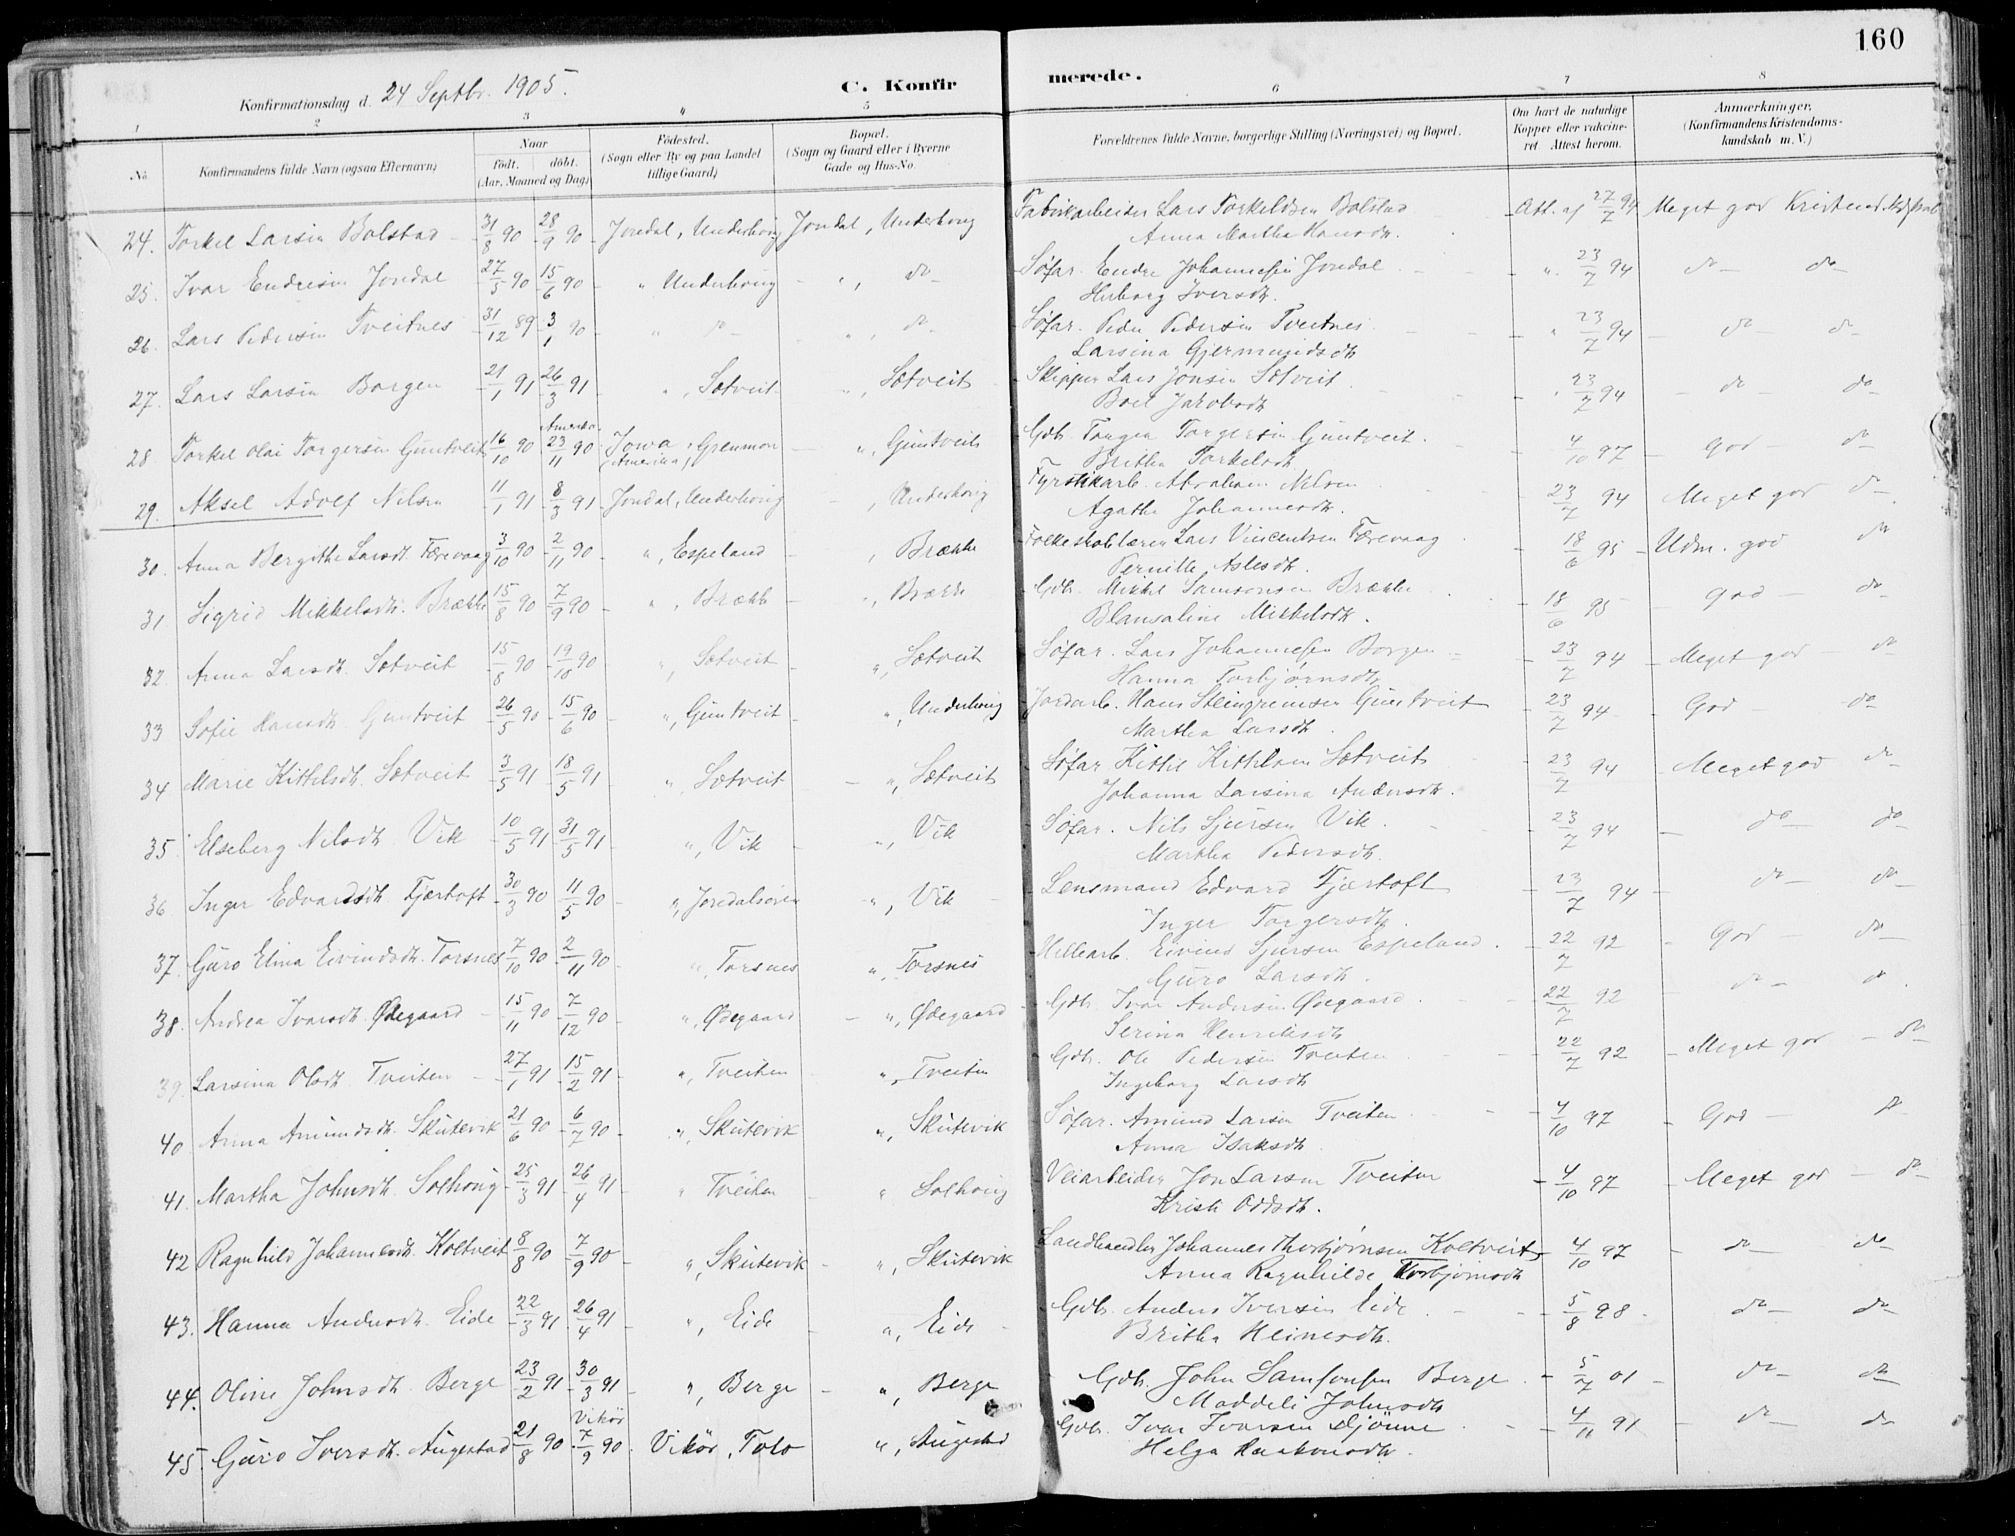 160
Konfirmationsdag d. 24 Septbr. 1905.
C. Konfir merede.
1 2 3 4 5 6 7 8
No
Konfirmandens fulde Navn (ogsaa Efternavn)
Naar født. døbt. (Aar, Maaned og Dag)
Fødested. (Sogn eller By og paa Landet tillige Gaard)
Bopæl. (Sogn og Gaard eller i Byerne Gade og Hus-No.
Forældrenes fulde Navne, borgerlige Stilling (Næringsvei) og Bopæl.
Om havt de naturlige Kopper eller vakcineret. Attest herom.
Anmærkninger. (Konfirmandens Kristendomskundskab m. V.)
24. Torkel Larsen Bolstad 31/8 90 28/9 90 Jondal, Underhoug Jondal, Underhoug Fabrikarbeider Lars Torkeldsen Bolstad Att. af 27/7 94 Meget god
Anna Martha Hansdt.
25. Ivar Endresen Jondal 27/5 90 15/6 90 " Underhoug ", do Søfar. Endre Johannesen Jondal " 23/7 94 do do
Herborg Iversdt.
26. Lars Pedersen Tveitnes 31/12 89 3/1 90 " do ", do Søfar. Peder Pedersen Tveitnes " 23/7 94 do do
Larsina Gjermundsdt
27. Lars Larsen Borgen 21/1 91 26/3 91 ", Sætveit ", Sætveit Skipper Lars Jonsen Sætveit " 23/7 94 do do
Boel Jakobsdt
28. Torkel Olai Torgersen Guntveit 16/10 90 Amerika 23/11 90 Iowa, Grenmon (Amerika) ", Guntveit Gdb. Torger Torgersen Guntveit 4/10 97 God do
Britha Torkelsdt
29. Aksel Adolf Nilsen 11/1 91 8/3 91 Jondal, Underhoug , Underhoug Fyrstikarb. Abraham Nilsen 23/7 94 Meget god do
Agathe Johannesdt.
30. Anna Bergithe Larsdt. Færevaag 3/10 90 2/11 90 ", Espeland , Brække Folkeskolelærer Lars Vincentsen Færevaag 18/6 95 Udm. god do
Pernille Aslesdt.
31 Sigrid Mikkelsdt. Brække 15/8 90 7/9 90 ", Brække ", Brække Gdb. Mikkel Samsonsen Brække 18/6 95 God do
Blansaline Mikkelsdt.
32. Anna Larsdt. Sætveit 15/8 90 19/10 90 ", Sætveit ", Sætveit Søfar. Lars Johannesen Borgen 23/7 94 Meget god do
Hanna Torbjørnsdt.
33 Sofie Hansdt. Guntveit 26/5 90 15/6 90 ", Guntveit ", Underhoug Jordarb. Hans Steingrimsen Guntveit 23/7 94 God do
Martha Larsdt.
34 Marie Kittelsdt. Sætveit 3/5 91 18/5 91 ", Sætveit ", Sætveit Søfar. Kittil Kittelsen Sætveit 23/7 94 Meget god do
Johanna Larsina Andersdt.
35. Elseberg Nilsdt. Vik 10/5 91 31/5 91 ", Vik ", Vik Søfar. Nils Sjursen Vik 23/7 94 do do
Martha Pedersdt.
36 Inger Edvardsdt. Fjærtoft 30/3 90 11/5 90 ", Jondalsøren ", Vik Lensmand Edvard Fjærtoft 23/7 94 do do
Inger Torgersdt.
37. Guro Elina Eivindsdt. Torsnes 7/10 90 2/11 90 ", Torsnes ", Torsnes Hellearb. Eivind Sjursen Espeland 22/7 92 God do
Guro Larsdt.
38. Andrea Ivarsdt. Ødegaard 15/11 90 7/12 90 ", Ødegaard ", Ødegaard Gdb. Ivar Andersen Ødegaard 22/7 92 do do
Serina Henriksdt
39. Larsina Olsdt. Tveiten 27/1 91 15/2 91 ", Tveiten ", Tveiten Gdb. Ole Pedersen Tveiten 22/7 92 Meget god do
Ingeborg Larsdt
40 Anna Amundsdt. Skutevik 21/6 90 6/7 90 ", Skutevik ", Skutevik Søfar. Amund Larsen Tveiten 4/10 97 God do
Anna Isaksdt.
41. Martha Johnsdt. Solhoug 25/3 91 26/4 91 " Tveiten " Solhoug Veiarbeider Jon Larsen Tveiten 4/10 97 Meget god do
Kristi Oddsdt.
42 Ragnhild Johannesdt. Koltveit 8/8 90 7/9 90 ", Skutevik ", Skutevik Landhandler Johannes Thorbjørnsen Koltveit 4/10 97 do do
Anna Ragnhilde Torbjørnsdt
43. Hanna Andersdt. Eide 22/3 91 26/4 91 ", Eide ", Eide Gdb. Anders Iversen Eide 5/8 98 do do
Britha Heinesdt.
44. Oline Johnsdt. Berge 23/2 91 30/3 91 ", Berge ", Berge Gdb. John Samsonsen Berge 5/7 01 do do
Maddeli Johnsdt
45. Guro Iversdt. Augestad 21/8 90 Vikør 7/9 90 Vikør, Tolo ", Augestad Gdb. Ivar Ivarsen Djønne 4/11 91 do do
Helga Haakonsdt.